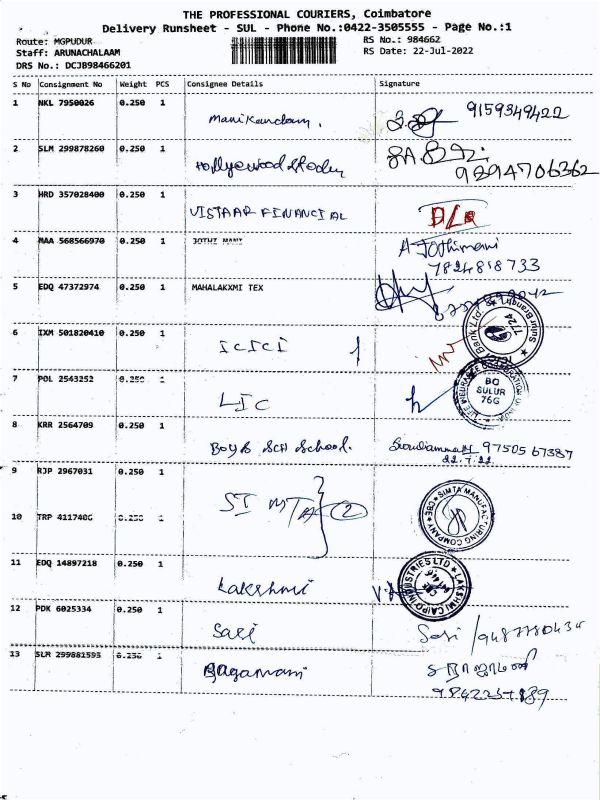 THE PROFESSIONAL COURIERS, Coimbatore
Delivery Runsheet - SUL - Phone No.:0422-3505555 - Page No.:1
Route: MGPUDUR RS No.: 984662
Staff: ARUNACHALAAM RS Date: 22-Jul-2022
DRS No.: DCJB98466201
S No Consignment No Weight PCS Consignee Details Signature
1 NKL 7950026 0.250 1 Manikandan. 9159349422
2 SLM 299878260 0.250 1 9294706362
3 HRD 357028400 0.250 1 VISTAAR FINANCIAL
4 MAA 568566970 0.250 1 JOTHI MANI A Jothimani
7824818733
5 EDQ 47372974 0.250 1 MAHALAKXMI TEX
6 IXM 501820410 0.250 1 ICICI Bank Ltd.
7 POL 2543252 0.250 1 LIC BO SULUR 76G
8 KRR 2564709 0.250 1 Boys SCH School. 9750567387
22.7.22
9 RJP 2967031 0.250 1 SIMTA 2 SIMTA MANUFACTURING COMPANY CBE
10 TRP 4117406 0.250 1
11 EDQ 14897218 0.250 1 Lakshmi
12 PDK 6025334 0.250 1 Sasi Sasi
13 SLM 299881593 0.250 1